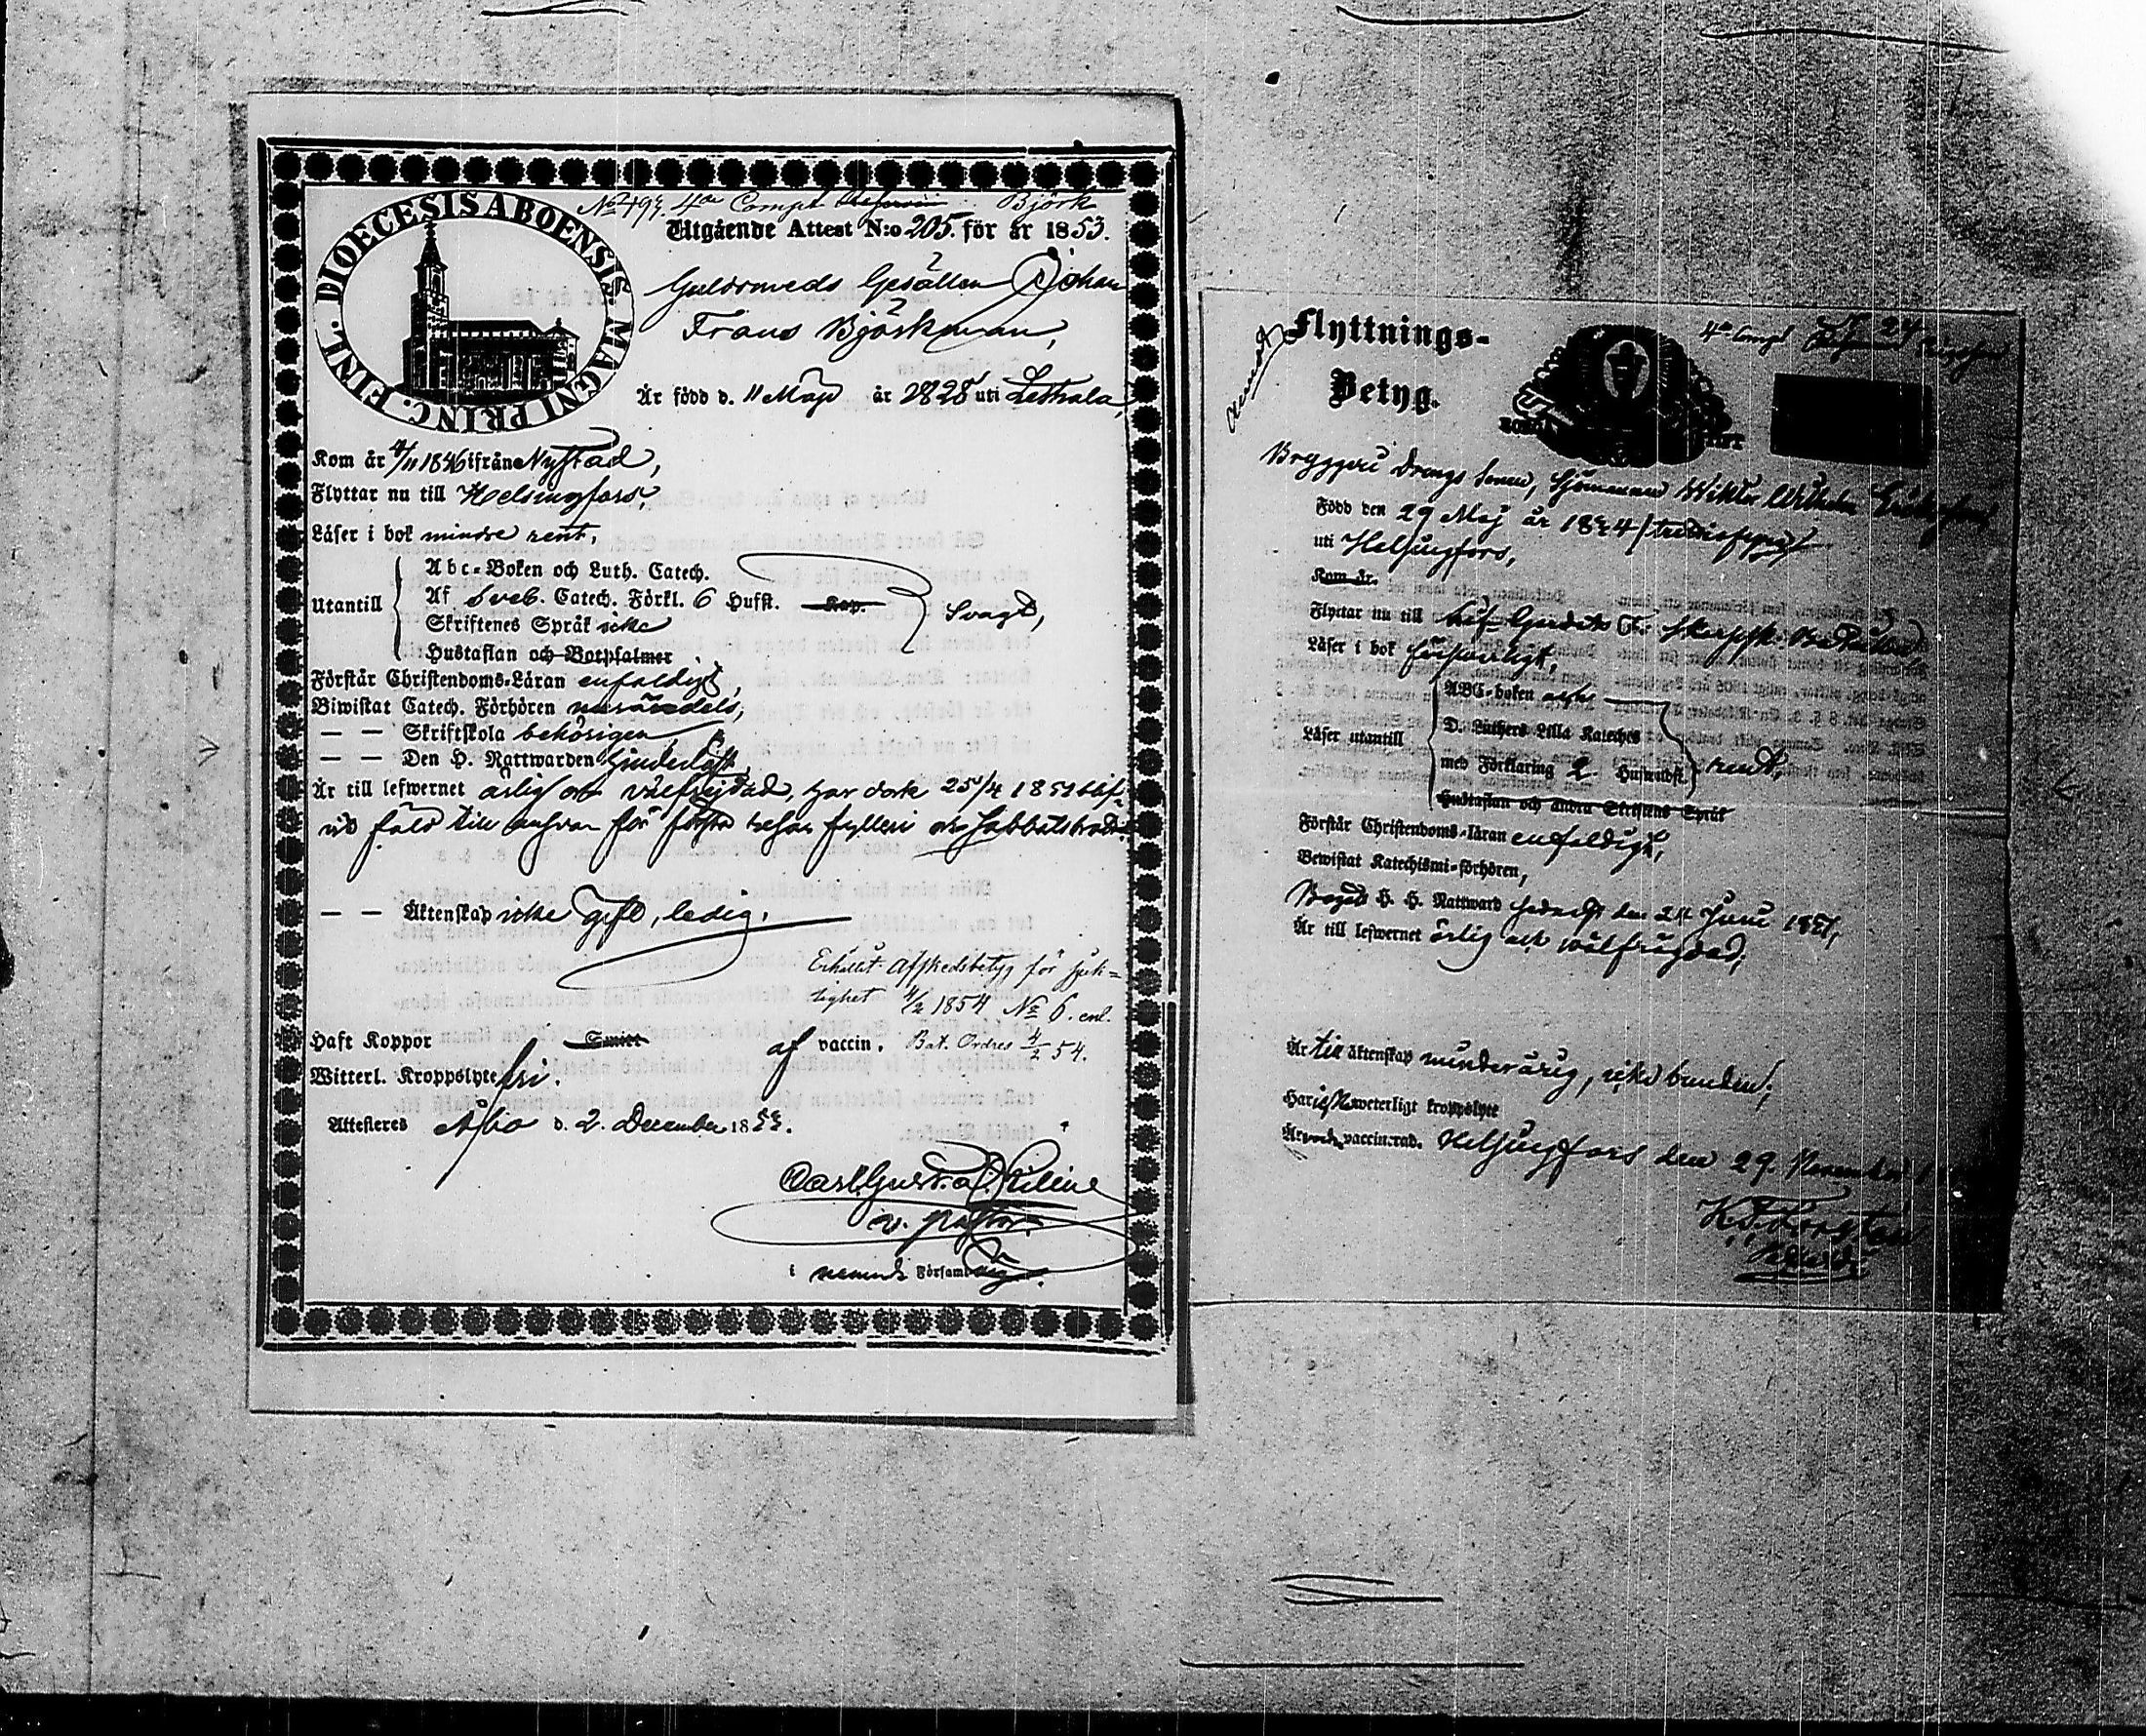 DIOECESIS ABOENSIS. MAGNI PRINC. FINL.
4de Comp. Björk
Utgående Attest N:o 205. för år 1853.
Guldsmeds Gesällen Johan
Frans Björkman,
Är född d. 11 Maji år 1828 uti Lethala,
Kom år 4/11 1846 ifrån Nystad,
Flyttar nu till Helsingfors,
Läser i bok mindre rent,
Utantill
Abc-Boken och Luth. Catech.
Af Sveb. Catech. Förkl. 6 Hufst. Kap.
Skriftenes Språk icke
Hustaflan och Botpsalmer
Svagt,
Förstår Christendoms-Läran enfaldigt,
Biwistat Catech. Förhören
— — Skriftskola behörigen
— — Den H. Nattwarden
Är till lefwernet ärlig och välfrejdad, har dock 25/4 1851 blif-
vit fäld till ansvar för första resan fylleri och sabbatsbrott.
— — Äktenskap icke gift, ledig.
Erhållit afskedsbetyg för sjuk-
lighet 4/2 1854 No 6. enl.
Bat. Ordres 4/2 54.
Haft Koppor Smitt af vaccin.
Witterl. Kroppslyte fri.
Attesteras Åbo d. 2. December 1853.
Carl Gust.
v. pastor
i nämnde Församling.
Flyttnings-
Betyg.
4de Comp No 24
Bryggeri Drengs Sonen, Sjömannen Wiktor Wilhelm
Född den 29 Maj år 1834 /trettiofyra/
uti Helsingfors,
Kom år.
Flyttar nu till Lif-Gardets F. Skarpsk: Bataillon
Läser i bok försvarligt,
Läser utantill
ABC-boken
D. Luthers Lilla Kateches
med Förklaring 2 Hufwudst.
Hustaflan och andra Skriftens Språk
rent,
Förstår Christendoms-läran enfaldigt,
Bewistat Katechismi-förhören,
Begått H. H. Nattward sednast den 24 Juni 1851,
Är till lefwernet ärlig och wälfrejdad;
Är till äktenskap minderårig, icke bunden;
Har icke weterligt kroppslyte
Är vaccinerad. Helsingfors den 29. November